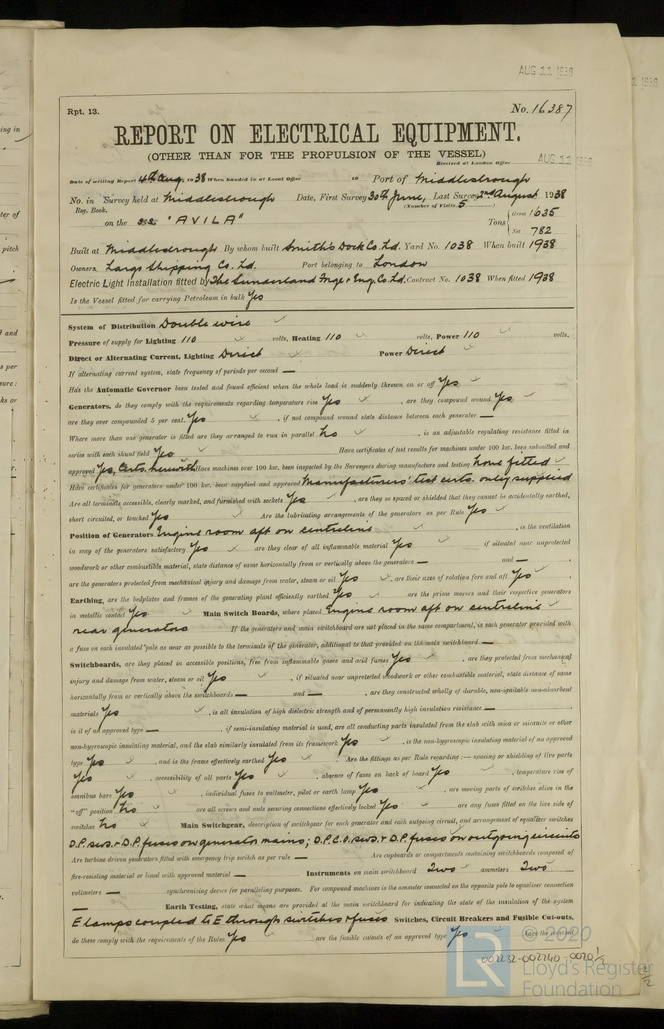 AUG 11 1938
Rpt. 13.
No. 16387
REPORT ON ELECTRICAL EQUIPMENT.
(OTHER THAN FOR THE PROPULSION OF THE VESSEL)
Received at London Office
AUG 11 1938
Date of writing Report 4th Aug. 1938 When handed in at Local Office 19 Port of Middlesbrough
No. in Survey held at Middlesbrough Date, First Survey 30th June, Last Survey 2nd August 1938
Reg. Book. (Number of Visits 5
on the "AVILA" Tons { Gross 1635
Net 782
Built at Middlesbrough By whom built Smith's Dock Co. Ld. Yard No. 1038 When built 1938
Owners Largs Shipping Co. Ld. Port belonging to London
Electric Light Installation fitted by The Sunderland Forge & Eng. Co. Ld. Contract No. 1038 When fitted 1938
Is the Vessel fitted for carrying Petroleum in bulk Yes
System of Distribution Double wire
Pressure of supply for Lighting 110 volts, Heating 110 volts, Power 110 volts.
Direct or Alternating Current, Lighting Direct Power Direct
If alternating current system, state frequency of periods per second —
Has the Automatic Governor been tested and found efficient when the whole load is suddenly thrown on or off Yes
Generators, do they comply with the requirements regarding temperature rise Yes , are they compound wound Yes
are they over compounded 5 per cent. Yes , if not compound wound state distance between each generator —
Where more than one generator is fitted are they arranged to run in parallel No , is an adjustable regulating resistance fitted in
series with each shunt field Yes Have certificates of test results for machines under 100 kw. been submitted and
approved Yes, Certs. herewith Have machines over 100 kw. been inspected by the Surveyors during manufacture and testing None fitted
Have certificates for generators under 100 kw. been supplied and approved Manufacturers' test certs. only supplied
Are all terminals accessible, clearly marked, and furnished with sockets Yes , are they so spaced or shielded that they cannot be accidentally earthed,
short circuited, or touched Yes Are the lubricating arrangements of the generators as per Rule Yes
Position of Generators Engine room aft on centreline , is the ventilation
in way of the generators satisfactory Yes are they clear of all inflammable material Yes if situated near unprotected
woodwork or other combustible material, state distance of same horizontally from or vertically above the generators — and —
are the generators protected from mechanical injury and damage from water, steam or oil Yes , are their axes of rotation fore and aft Yes
Earthing, are the bedplates and frames of the generating plant efficiently earthed Yes are the prime movers and their respective generators
in metallic contact Yes Main Switch Boards, where placed Engine room aft on centreline
near generators If the generators and main switchboard are not placed in the same compartment, is each generator provided with
a fuse on each insulated pole as near as possible to the terminals of the generator, additional to that provided on the main switchboard —
Switchboards, are they placed in accessible positions, free from inflammable gases and acid fumes Yes , are they protected from mechanical
injury and damage from water, steam or oil Yes , if situated near unprotected woodwork or other combustible material, state distance of same
horizontally from or vertically above the switchboards — and — , are they constructed wholly of durable, non-ignitable non-absorbent
materials Yes , is all insulation of high dielectric strength and of permanently high insulation resistance —
is it of an approved type — , if semi-insulating material is used, are all conducting parts insulated from the slab with mica or micanite or other
non-hygroscopic insulating material, and the slab similarly insulated from its framework Yes , is the non-hygroscopic insulating material of an approved
type Yes , and is the frame effectively earthed Yes Are the fittings as per Rule regarding:— spacing or shielding of live parts
Yes , accessibility of all parts Yes , absence of fuses on back of board Yes , temperature rise of
omnibus bars Yes , individual fuses to voltmeter, pilot or earth lamp Yes , are moving parts of switches alive in the
"off" position No , are all screws and nuts securing connections effectively locked Yes , are any fuses fitted on the live side of
switches No Main Switchgear, description of switchgear for each generator and each outgoing circuit, and arrangement of equaliser switches
D.P. sws. & D.P. fuses on generator mains; D.P.C.O. sws. & D.P. fuses on outgoing circuits
Are turbine driven generators fitted with emergency trip switch as per rule — Are cupboards or compartments containing switchboards composed of
fire-resisting material or lined with approved material — Instruments on main switchboard Two ammeters Two
voltmeters — synchronising device for paralleling purposes. For compound machines is the ammeter connected on the opposite pole to equaliser connection
— Earth Testing, state what means are provided at the main switchboard for indicating the state of the insulation of the system
E lamps coupled to E through switches & fuses Switches, Circuit Breakers and Fusible Cut-outs,
do these comply with the requirements of the Rules Yes are the fusible cutouts of an approved type Yes
© 2020
Lloyd's Register
Foundation
LR
002232-002240-0020 1/2